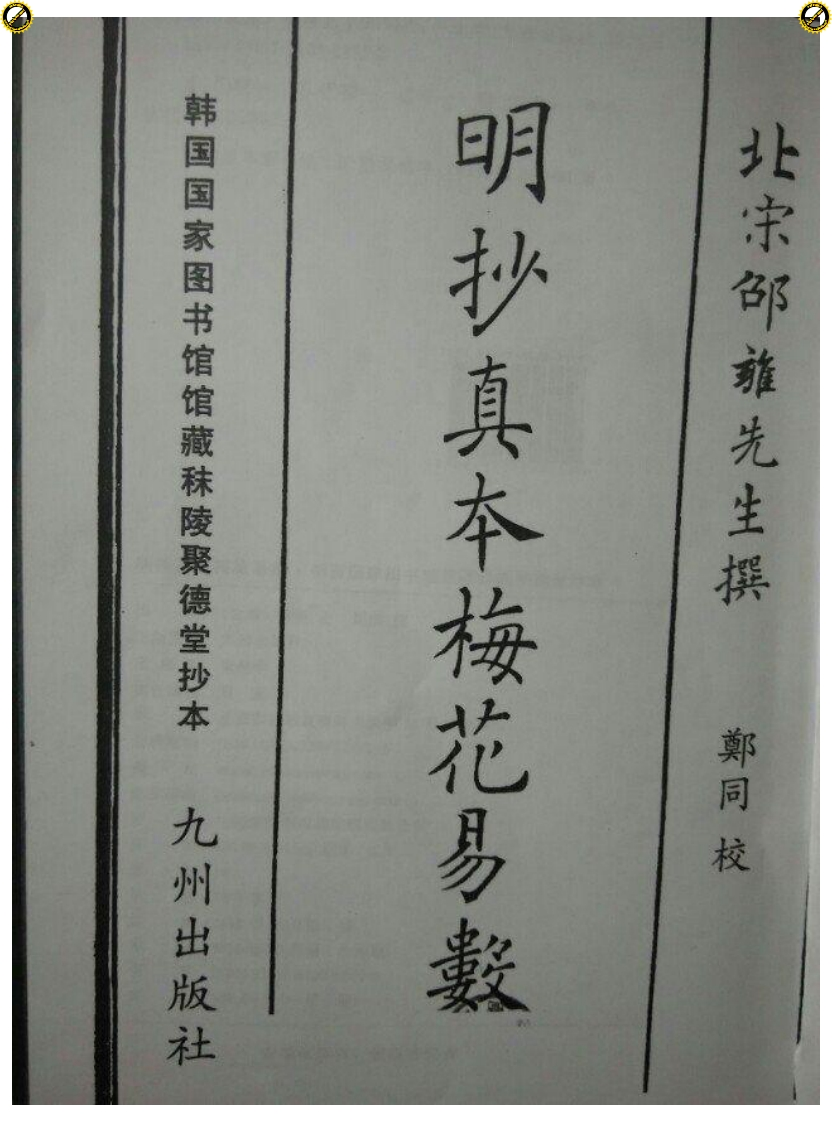 北宋邵雍先生撰 鄭同校
明抄真本梅花易數
韩国国家图书馆馆藏秣陵聚德堂抄本 九州出版社